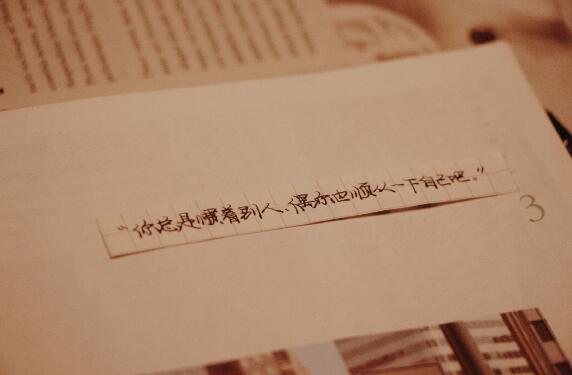 “你总是顺着别人、偶尔也顺人一下自己吧。”
3